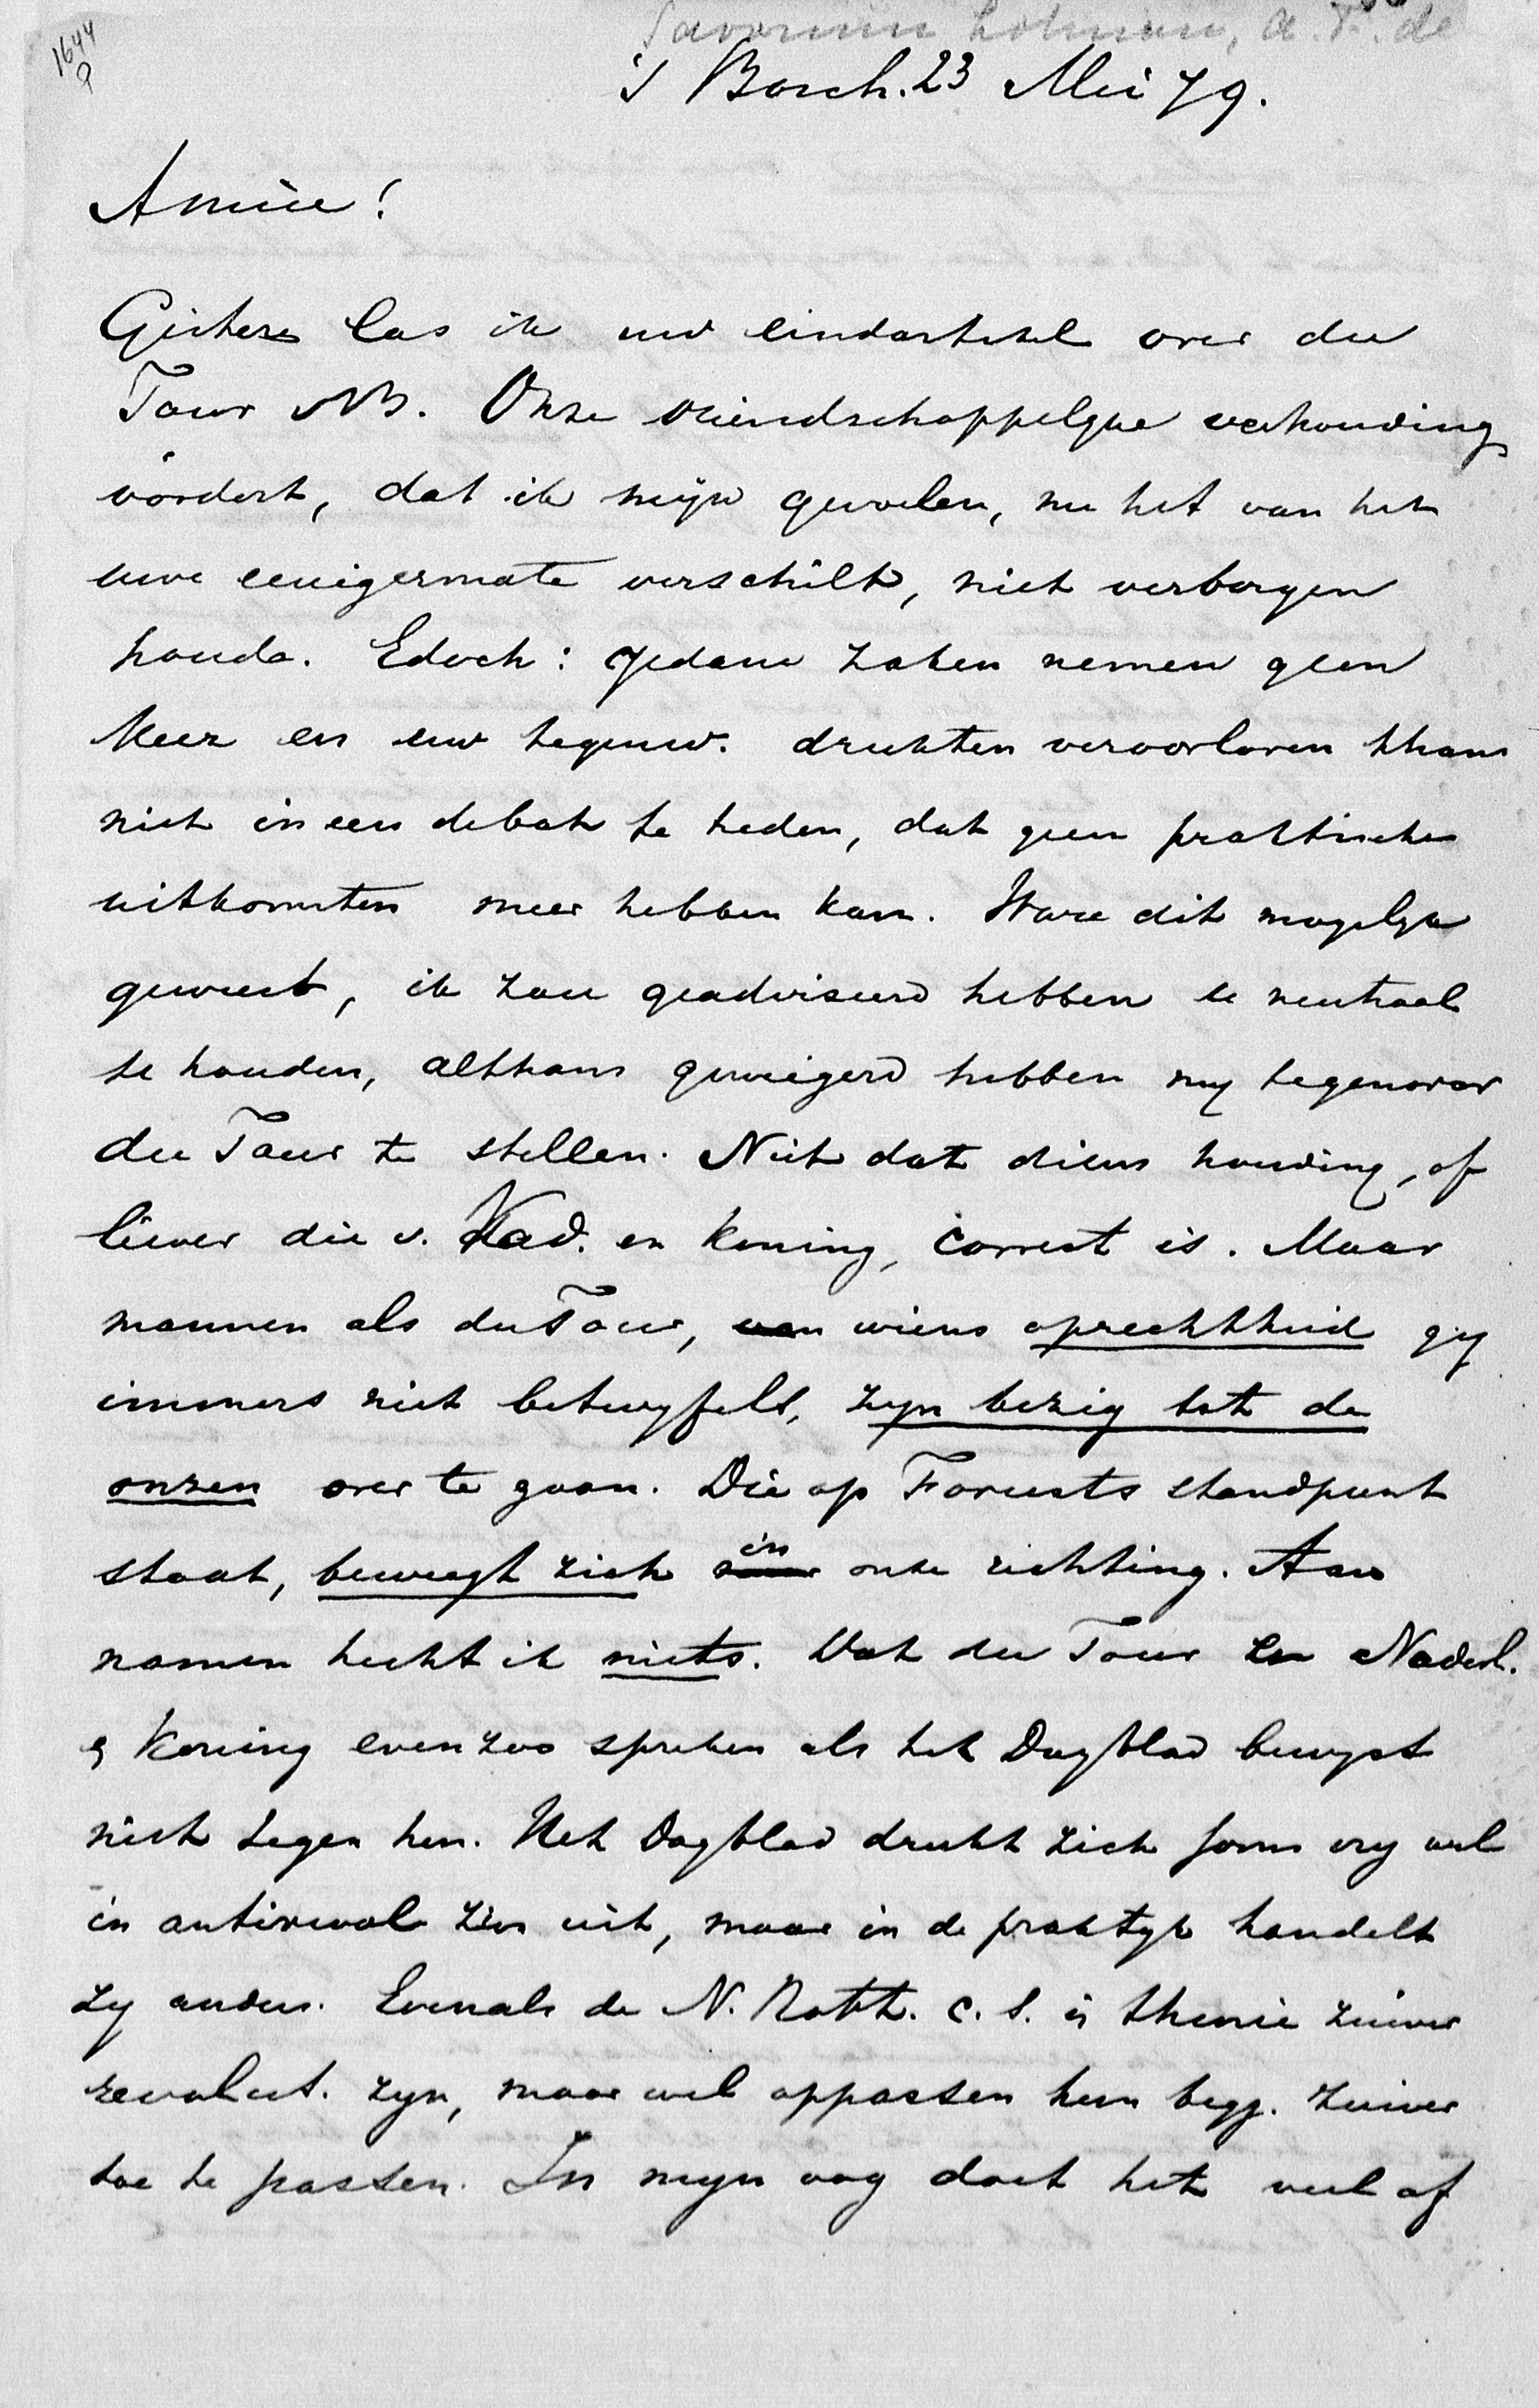 1644
9
Savornin Lohman, A.F. de
's Bosch. 23 Mei 79.
Amice!
Gisteren las ik uw eindartikel over du
Tour v B. Onze vriendschappelijke verhouding
vordert, dat ik mijn gevoelen, nu het van het
uwe eenigermate verschilt, niet verborgen
houde. Edoch: gedane zaken nemen geen
keer en uw tegenw. drukten veroorloven thans
niet in een debat te treden, dat geen praktische
uitkomsten meer hebben kan. Ware dit mogelyk
geweest, ik zou geadviseerd hebben u neutraal
te houden, althans geweigerd hebben my tegenover
du Tour te stellen. Niet dat diens houding, of
liever die v. Vad. en Koning, correct is. Maar
mannen als du Tour, van wiens oprechtheid gy
immers niet betwyfelt, zyn bezig tot de
onzen over te gaan. Die op Foreests standpunt
staat, beweegt zich in onze richting. Aan
namen hecht ik niets. Dat du Tour en Nederl.
& Koning evenzoo spreken als het Dagblad bewyst
niets tegen hen. Het Dagblad drukt zich soms vry wel
in antirevol zin uit, maar in de praktyk handelt
zy anders. Evenals de N. Rott. c.s. in theorie zuiver
revolut. zyn, maar wel oppassen hun begg. zuiver
toe te passen. In myn oog doet het veel af